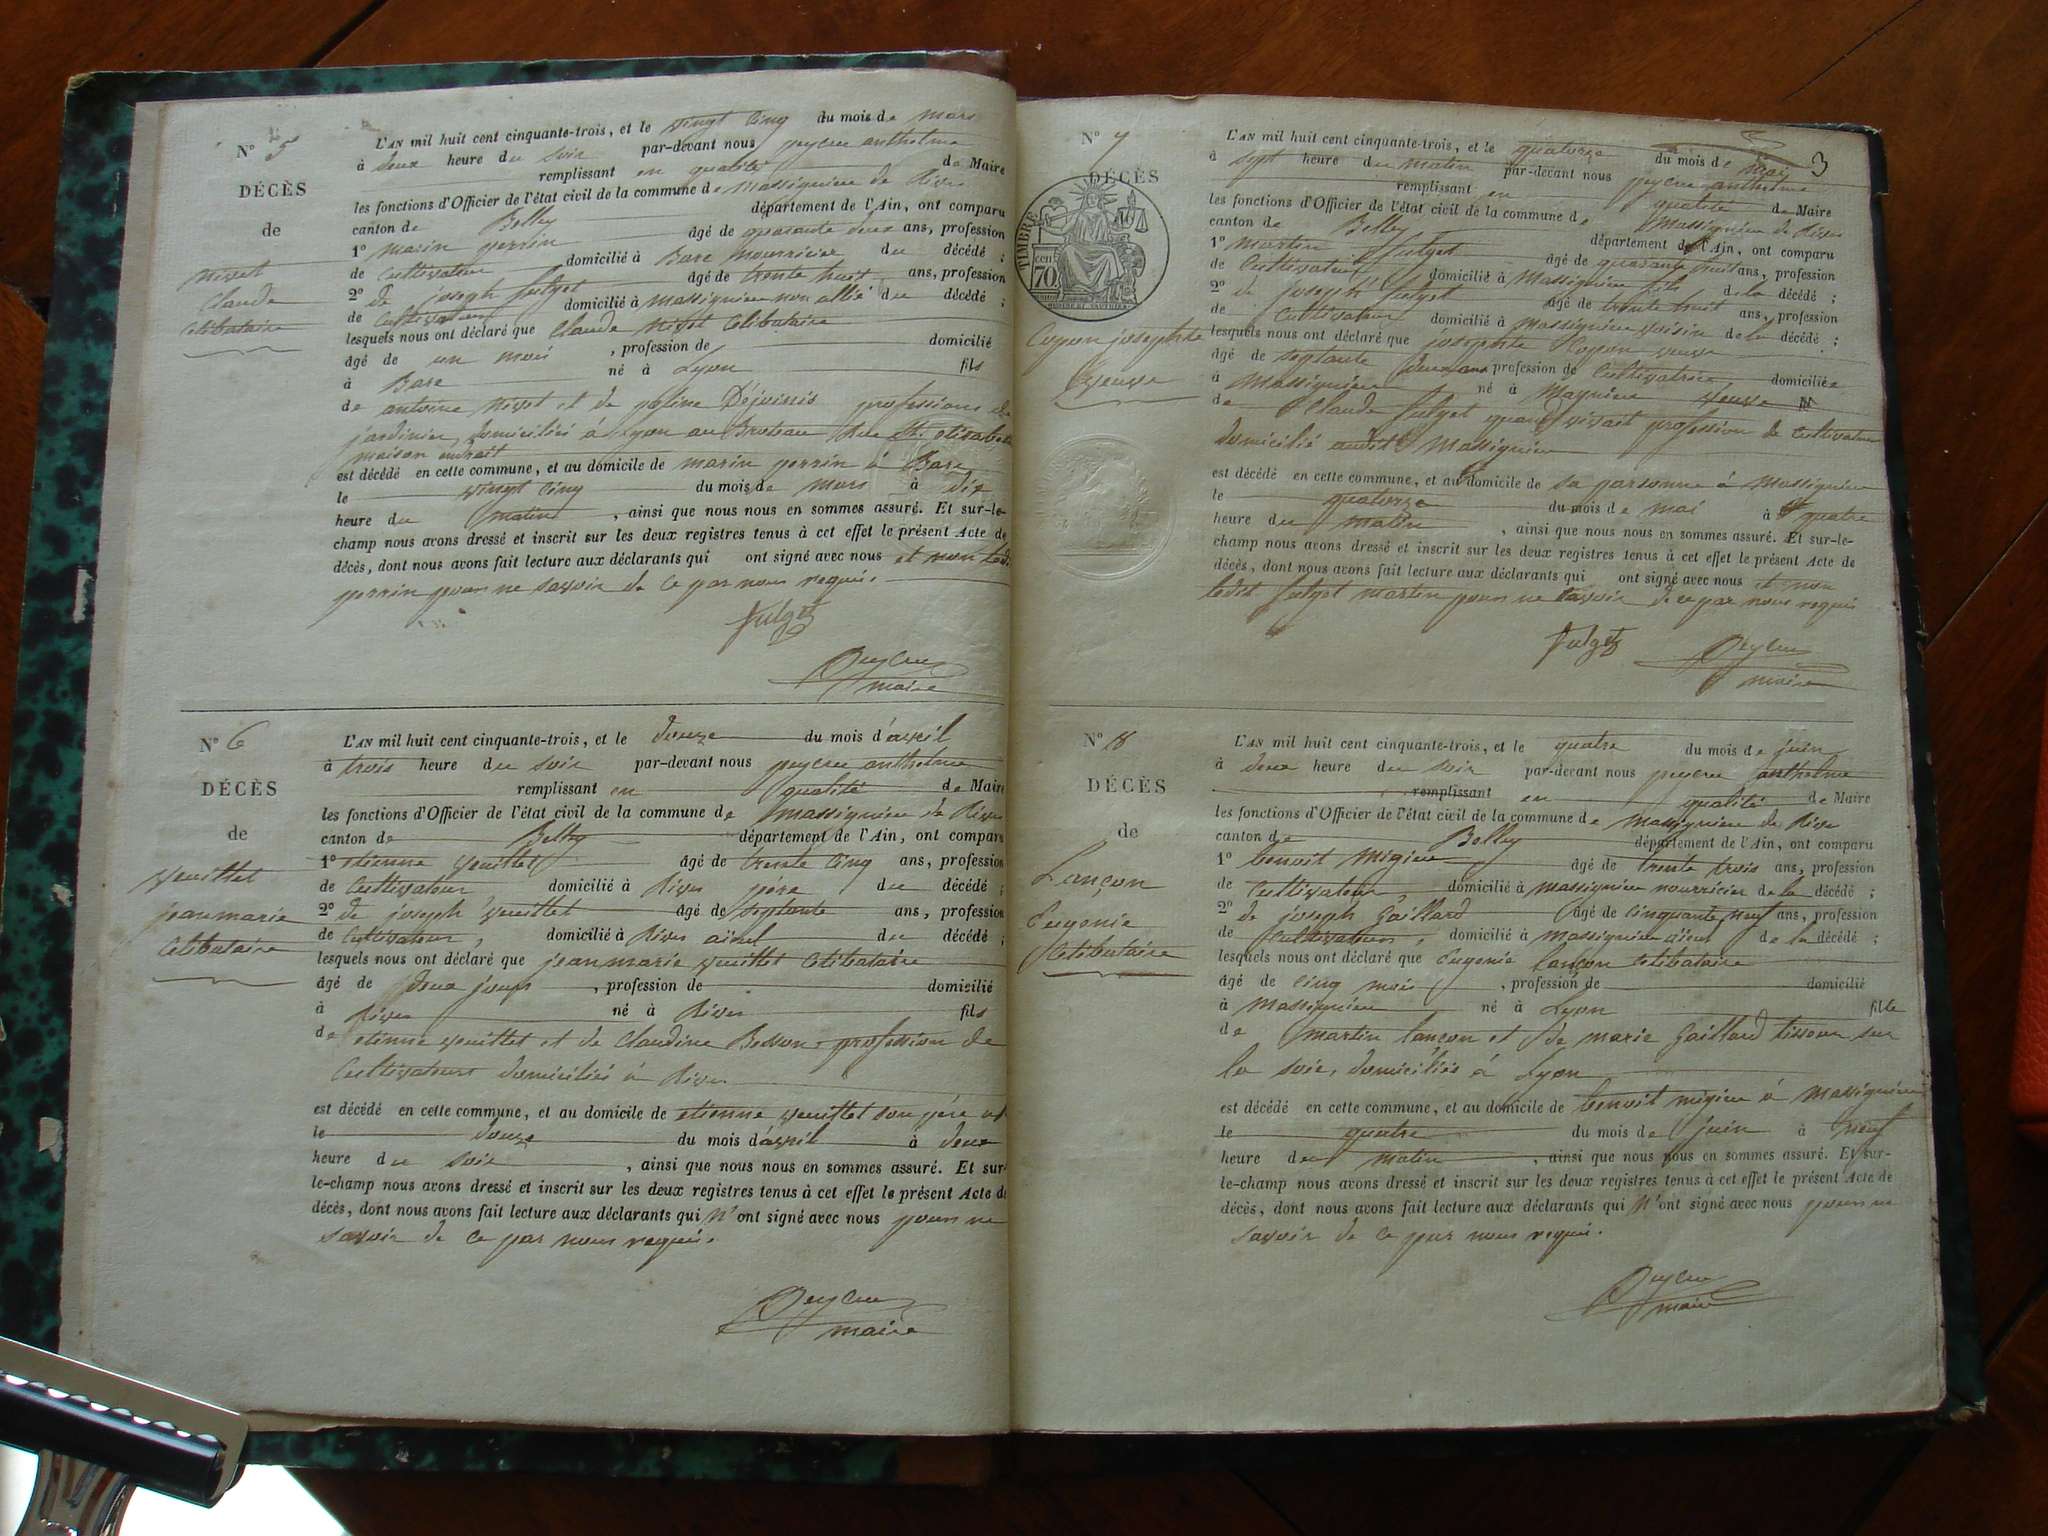 N° 5
DÉCÈS
de
Nivet
Claude
Celibataire
L'AN mil huit cent cinquante-trois, et le vingt Cinq du mois de mars
à deux heure du soir par-devant nous peycru anthelme
remplissant en qualité de Maire
les fonctions d'Officier de l'état civil de la commune de Massignieu de Rives
canton de Belley département de l'Ain, ont comparu
1° marin perrin âgé de quarante deux ans, profession
de Cultivateur domicilié à Bare nourricier du décédé ;
2° de joseph fulget âgé de trente huit ans, profession
de Cultivateur domicilié à massignieu non allié du décédé ;
lesquels nous ont déclaré que Claude Nivet Celibataire
âgé de un moi , profession de domicilié
à Bare né à Lyon fils
de antoine Nivet et de professions de
jardinier, domiciliés à Lyon au Broteau Rue St. elisabeth
maison
est décédé en cette commune, et au domicile de marin perrin à Bare
le vingt Cinq du mois de mars à dix
heure du matin , ainsi que nous nous en sommes assuré. Et sur-le-
champ nous avons dressé et inscrit sur les deux registres tenus à cet effet le présent Acte de
décès, dont nous avons fait lecture aux déclarants qui ont signé avec nous et non led.
perrin pour ne savoir de ce par nous requi.
fulget
Peycru
maire
N° 6
DÉCÈS
de
Veuillet
jean marie
Celibataire
L'AN mil huit cent cinquante-trois, et le douze du mois d'avril
à trois heure du soir par-devant nous peycru anthelme
remplissant en qualité de Maire
les fonctions d'Officier de l'état civil de la commune de Massignieu de Rives
canton de Belley département de l'Ain, ont comparu
1° etienne Veuillet âgé de trente Cinq ans, profession
de Cultivateur domicilié à Rives père du décédé ;
2° de joseph Veuillet âgé de septante ans, profession
de Cultivateur, domicilié à Rives aïuel du décédé ;
lesquels nous ont déclaré que jean marie Veuillet Celibataire
âgé de deux jours , profession de domicilié
à Rives né à Rives fils
de etienne Veuillet et de Claudine Besson, profession de
Cultivateurs domiciliés à Rives
est décédé en cette commune, et au domicile de etienne Veuillet son père
le douze du mois d'avril à deux
heure du soir , ainsi que nous nous en sommes assuré. Et sur-
le-champ nous avons dressé et inscrit sur les deux registres tenus à cet effet le présent Acte de
décès, dont nous avons fait lecture aux déclarants qui N'ont signé avec nous pour ne
savoir de ce par nous requi.
Peycru
maire
3
N° 7
DÉCÈS
TIMBRE
70
Copon josephte
Veuve
L'AN mil huit cent cinquante-trois, et le quatorze du mois de mai
à sept heure du matin par-devant nous peycru anthelme
remplissant en qualité de Maire
les fonctions d'Officier de l'état civil de la commune de Massignieu de Rives
canton de Belley département de l'Ain, ont comparu
1° Martin fulget âgé de quarante huit ans, profession
de Cultivateur domicilié à Massignieu fils de la décédé ;
2° de joseph fulget âgé de trente huit ans, profession
de Cultivateur domicilié à Massignieu voisin de la décédé ;
lesquels nous ont déclaré que josephte Copon veuve
âgé de septante deux ans profession de Cultivatrice domiciliée
à Massignieu né à Magnieu Veuve
de Claude fulget quand vivait profession de Cultivateur
domicilié audit Massignieu
est décédé en cette commune, et au domicile de sa parsonne à Massignieu
le quatorze du mois de mai à quatre
heure du matin , ainsi que nous nous en sommes assuré. Et sur-le-
champ nous avons dressé et inscrit sur les deux registres tenus à cet effet le présent Acte de
décès, dont nous avons fait lecture aux déclarants qui ont signé avec nous et non
ledit fulget martin pour ne savoir de ce par nous requi
fulget
Peycru
maire
N° 8
DÉCÈS
de
Lançon
Eugenie
Celibataire
L'AN mil huit cent cinquante-trois, et le quatre du mois de juin
à deux heure du soir par-devant nous peycru anthelme
remplissant en qualité de Maire
les fonctions d'Officier de l'état civil de la commune de Massignieu de Rive
canton de Belley département de l'Ain, ont comparu
1° benoit Migieu âgé de trente trois ans, profession
de Cultivateur, domicilié à massignieu nourricier de la décédé ;
2° de joseph Gaillard âgé de cinquante neuf ans, profession
de Cultivateur, domicilié à massignieu aïeul de la décédé ;
lesquels nous ont déclaré que Eugenie Lançon Celibataire
âgé de Cinq mois , profession de domicilié
à Massignieu né à Lyon fille
de martin lançon et de marie Gaillard tisseur sur
la soie, domiciliés à Lyon
est décédé en cette commune, et au domicile de benoit migieu à Massignieu
le quatre du mois de juin à neuf
heure du matin , ainsi que nous nous en sommes assuré. Et sur-
le-champ nous avons dressé et inscrit sur les deux registres tenus à cet effet le présent Acte de
décès, dont nous avons fait lecture aux déclarants qui N'ont signé avec nous pour ne
savoir de ce par nous requi.
Peycru
maire